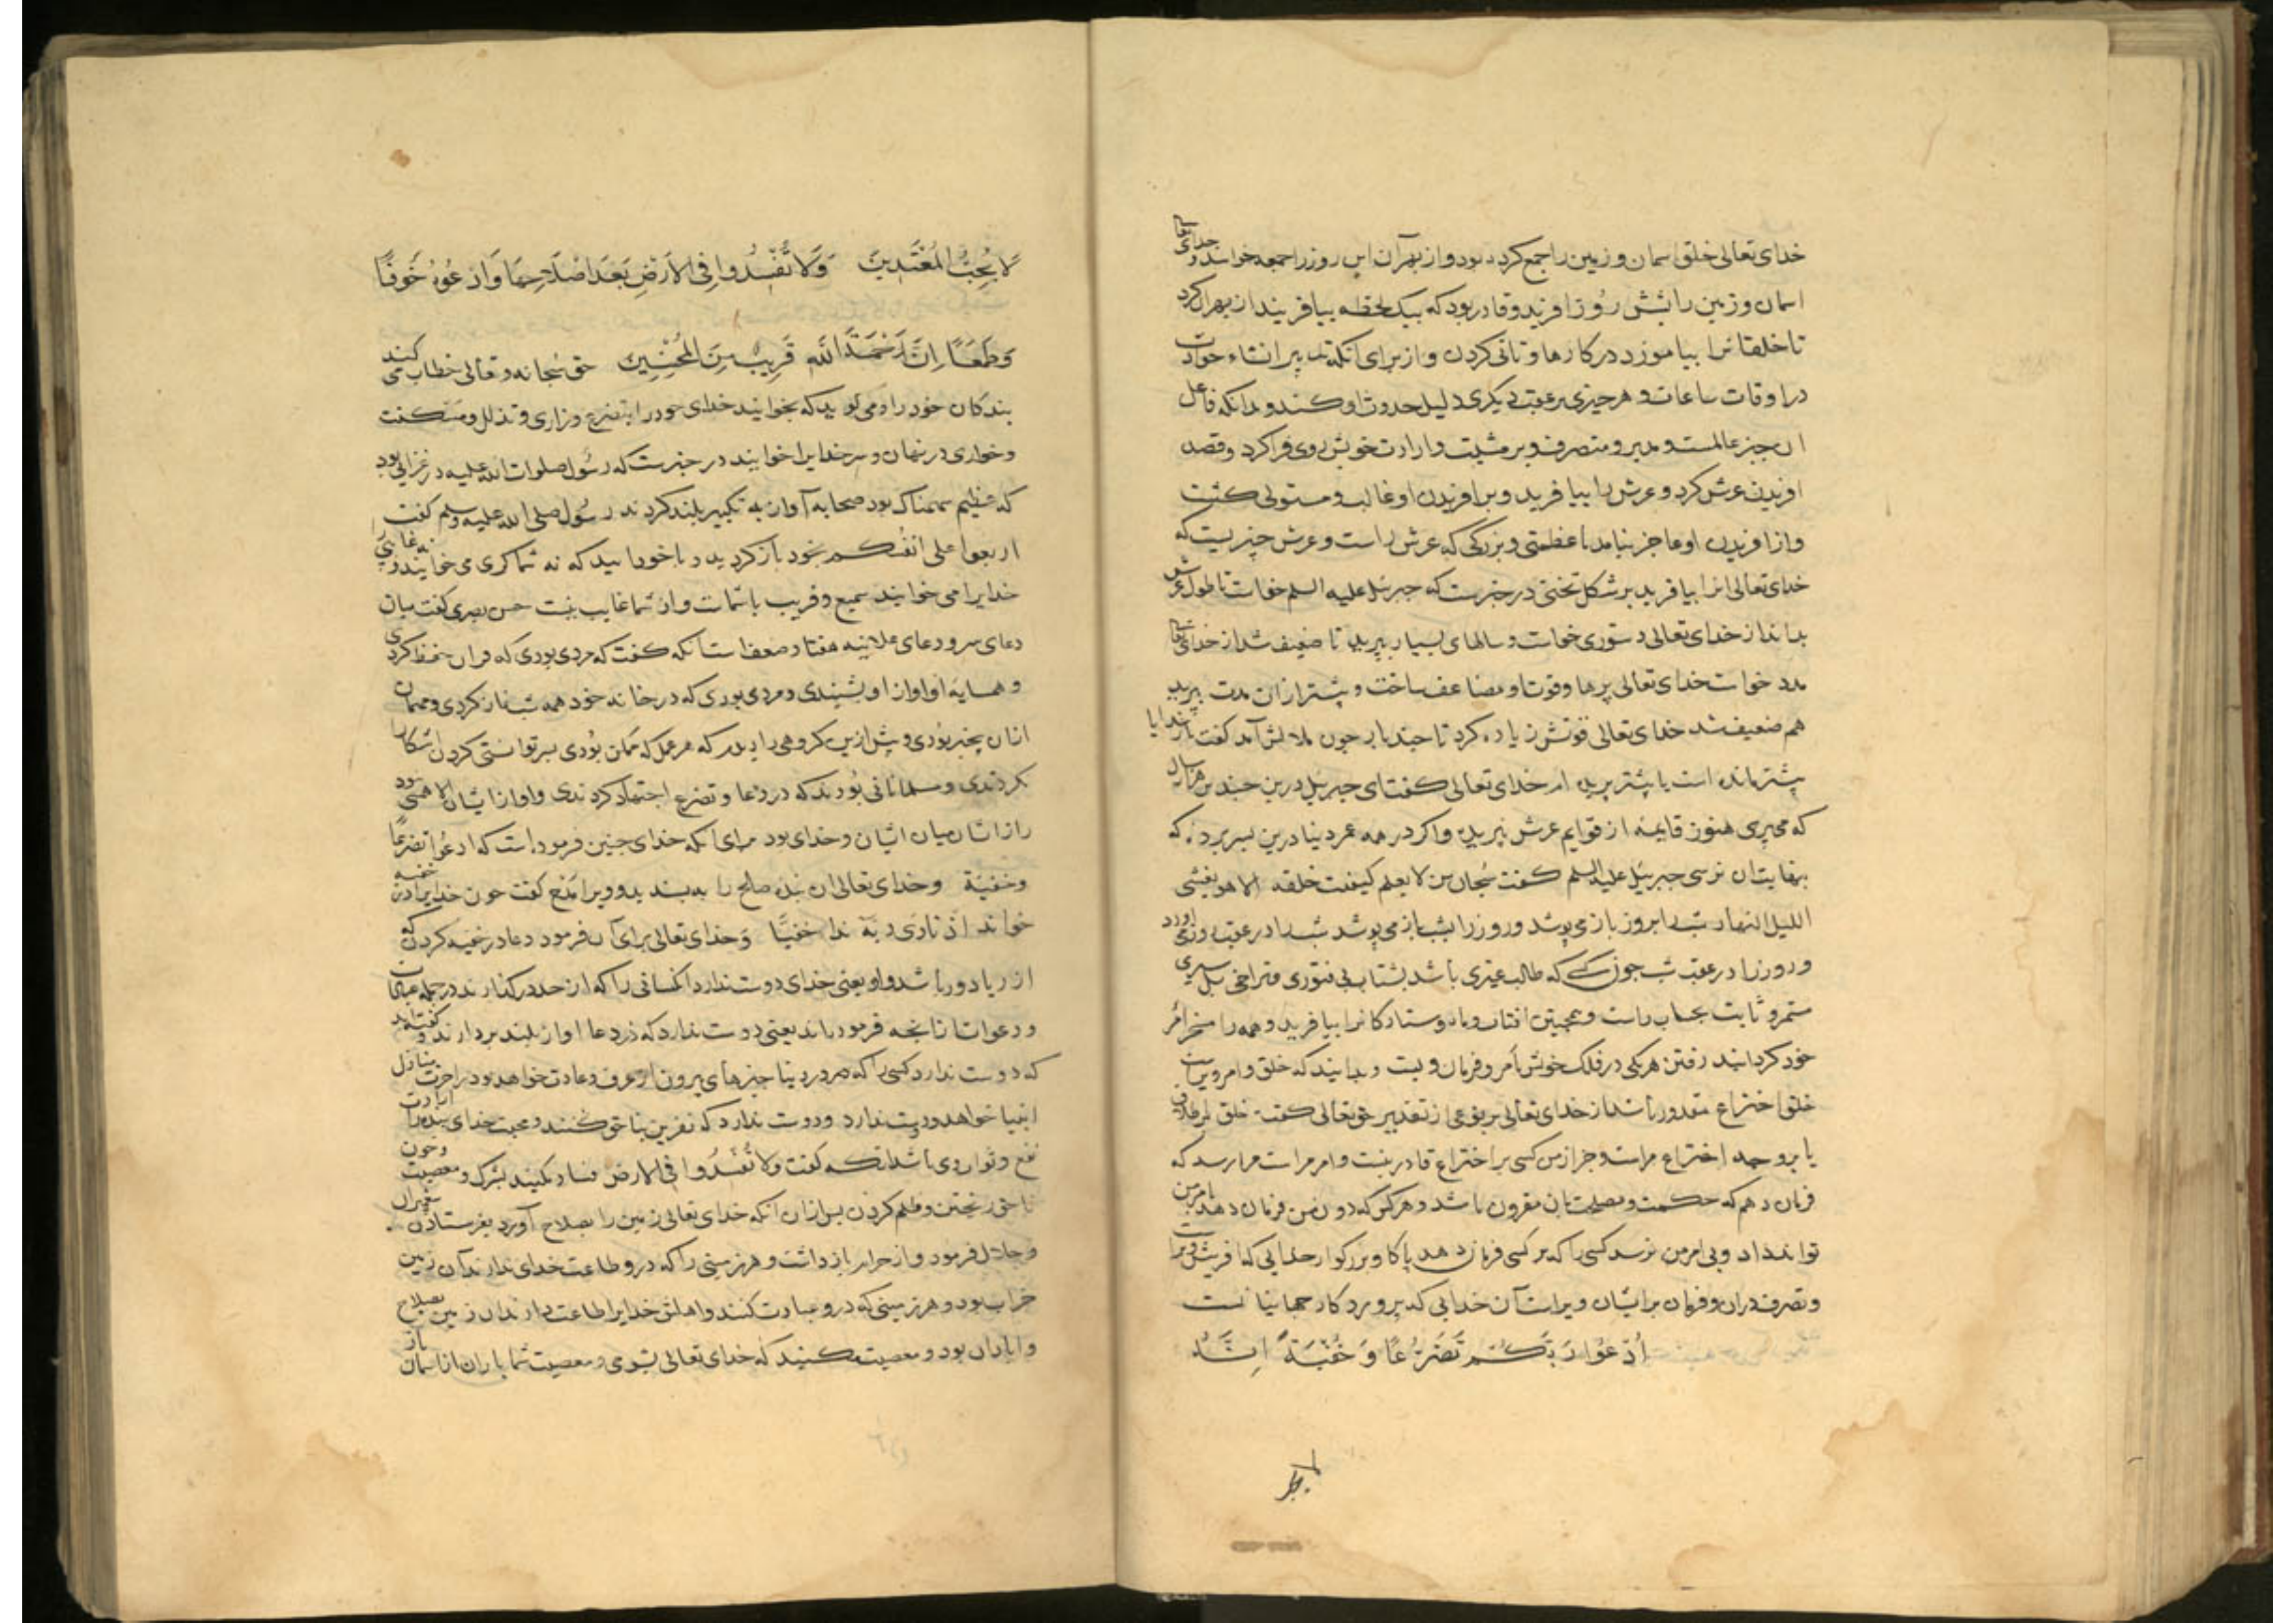 خدای تعالی خلق اسمان و زمین را جمع کرده بود و از بهر آن این روز را جمعه خوانند و خدای تعالی
اسمان و زمین را بشش روز افرید و قادر بود که بیک لحظه بیافریند از بهر ان کرد
تا خلقانرا بیاموزد در کارها و تانی کردن و از برای انکه تدبیر انشاء حوادث
در اوقات ساعات و هر چیزی بر عقب دیکری دلیل حدوث او کند و بدانکه فاعل
ان جز عالمست و مدبر و متصرف و بر مشیت و ارادت خویش روی فرا کرد و قصد
افریدن عرش کرد و عرش را بیافرید و بر افریدن او غالب و مستولی کشت
و از افریدن او عاجز نیامد با عظمتی و بزرکی که عرش راست و عرش چیزیست که
خدای تعالی انرا بیافرید بر شکل تختی در خبرست که جبرئیل علیه السلم خواست تا طول عرش
بداند از خدای تعالی دستوری خواست و سالهای بسیار بپرید تا ضعیف شد از خدای تعالی
مدد خواست خدای تعالی پرها و قوت او مضاعف ساخت و بیشتر از ان مدت بپرید
هم ضعیف شد خدای تعالی قوتش زیاده کرد تا چند بار چون ملالش آمد کفت بار خدایا
بیشتر مانده است یا بیشتر پریده ام خدای تعالی کفت ای جبرئیل درین چندین هزار سال
که می‌پری هنوز قایمه از قوایم عرش نپریدی و اکر در همه عمر دنیا درین بسر برده که
بنهایت ان نرسی جبرئیل علیه السلم کفت سبحان من لا یعلم کیفیت خلقه الا هو یغشی
اللیل النهار شب را بروز باز می پوشد و روز را بشب باز می پوشد شب را در عقب روز می اورد
و روز را در عقب شب چون کسی که طالب چیزی باشد بشتاب بی فتوری و تراخی بل سیری
مستمر و ثابت بحساب راست و همچنین افتاب و ماه و ستارکانرا بیافرید و همه را مسخر امر
خود کردانید رفتن هریکی در فلک خویش بامر و فرمان ویست و بدانید که خلق و امر ویراست
خلق اختراع مقدور باشد از خدای تعالی بر نوعی از تقدیر حق تعالی کفت خلق بر اطلاق
یا بر وجه اختراع مراست و جز از من کسی بر اختراع قادر نیست و امر مراست مرا رسد که
فرمان دهم که حکمت و مصلحت بان مقرون باشد و هر کس که دون من فرمان دهد بامر من
تواند داد و بی امر من نرسد کسی را که بر کسی فرمان دهد پاکا و بزرکوار خدایی که افرینش ویرا
و تصرف دران و فرمان بر ایشان ویراست آن خدایی که پروردکار جهانیانست
اُدْعُوا رَبَّكُمْ تَضَرُّعًا وَ خُفْيَةً اِنَّهُ
لا یحب
لَا يُحِبُّ الْمُعْتَدِينَ وَلَا تُفْسِدُوا فِى الْاَرْضِ بَعْدَ اِصْلَاحِهَا وَادْعُوهُ خَوْفًا
وَطَمَعًا اِنَّ رَحْمَةَ اللّٰهِ قَرِيبٌ مِنَ الْمُحْسِنِينَ حق سبحانه و تعالی خطاب می کند
بندکان خود را و می کوید که بخوانید خدای خود را بتضرع و زاری و تذلل و مسکنت
و خواری در نهان و سر خدایرا خوانید در خبرست که رسول صلوات الله علیه در غزایی بود
که عظیم سهمناک بود صحابه آواز به تکبیر بلند کردند رسول صلی الله علیه و سلم کفت
اربعوا علی انفسکم بخود باز کردید و با خود ایید که نه شما کری می خوانید و نه غایبی
خدایرا می خوانید سمیع و قریب با شماست و از شما غایب نیست حسن بصری کفت میان
دعای سر و دعای علانیه هفتاد ضعف است انکه کفت که مردی بودی که قران حفظ کردی
و همسایهٔ او اواز او نشنیدی و مردی بودی که در خانه خود همه شب نماز کردی و مهمان
ازان بیخبر بودی و پیش ازین کروهی را دیدم که هر عمل که ممکن بودی بسر توانستی کردن اشکارا
نکردندی و مسلمانانی بودند که در دعا و تضرع اجتهاد کردندی و اواز ایشان الا همسی نبود
راز ایشان میان ایشان و خدای بود برای انکه خدای چنین فرموده است که ادعوا تضرعًا
وخفیة و خدای تعالی ان بنده صالح را به پسندید و ویرا مدح کفت چون خدایرا در خفیه
خواند اذ نادی ربه ندا خفیًا و خدای تعالی برای آن فرمود دعا در خفیه کردن که
از ریا دور باشد و او یعنی خدای دوست ندارد انکسانی را که از حد درکذارند در جمله عبادات
و دعوات انچه فرموده‌اند یعنی دوست ندارد که در دعا اواز بلند بردارند و کفته‌اند
که دوست ندارد کسی را که در دنیا چیزهای بیرون از عرف و عادت خواهد و در اخرت منازل
انبیا خواهد و دوست ندارد که نفرین بناحق کنند و محبت خدای بنده را ارادت
نفع و ثواب وی باشد انکه کفت ولا تفسدوا فی الارض فساد مکنید بشرک و معصیت و خون
ناحق ریختن و ظلم کردن پس ازان انکه خدای تعالی زمین را بصلاح آورد بفرستادن پیغمبران
و حلال فرمود و از حرام باز داشت و هر زمینی را که درو طاعت خدای ندارند آن زمین
خراب بود و هر زمینی که درو عبادت کنند و اهلش خدایرا طاعت دارند ان زمین بصلاح
و ابادان بود و معصیت مکنید که خدای تعالی بشومی و معصیت شما باران از اسمان باز